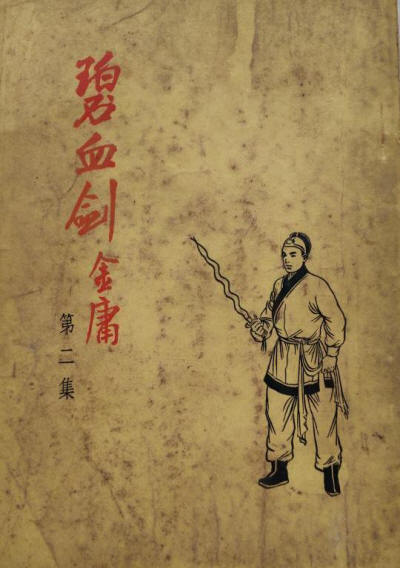 碧血劍
金庸
第二集